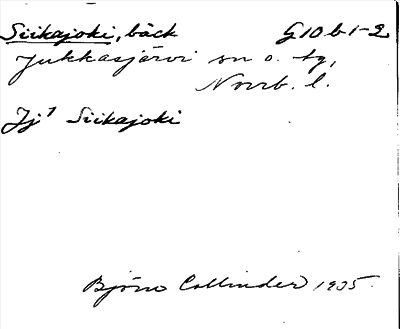 Siikajoki, bäck G10b1-2
Jukkasjärvi sn o. tg,
Norrb. l.
Jj¹ Siikajoki
Björn Collinder 1935